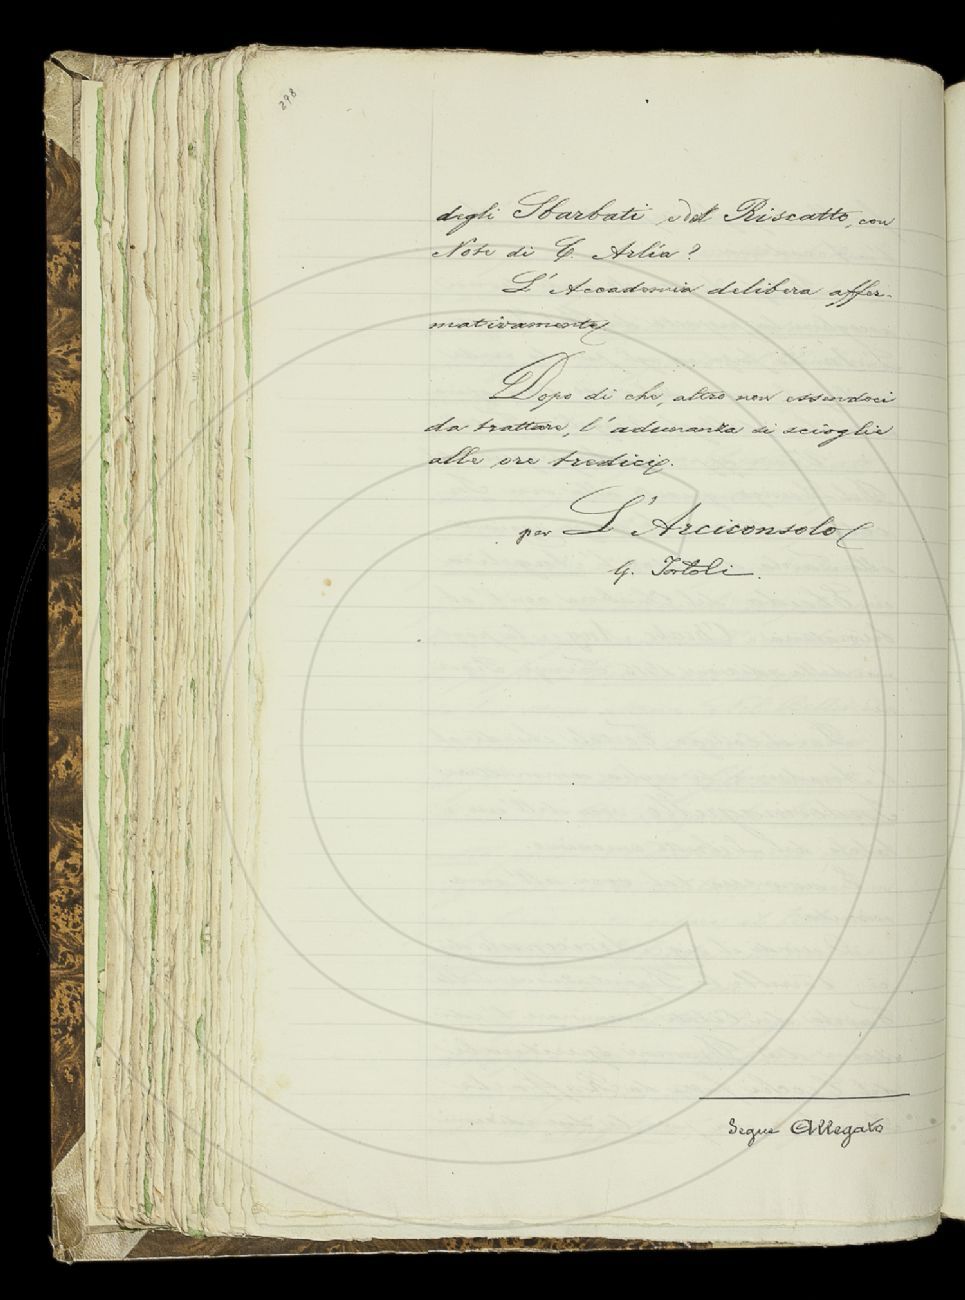 298
degli Sbarbati e del Riscatto, con
Note di C. Arlia?
L'Accademia delibera affer-
mativamente
Dopo di che, altro non essendoci
da trattare, l'adunanza si scioglie
alle ore tredici.
per L'Arciconsolo
G. Tortoli.
Segue Allegato